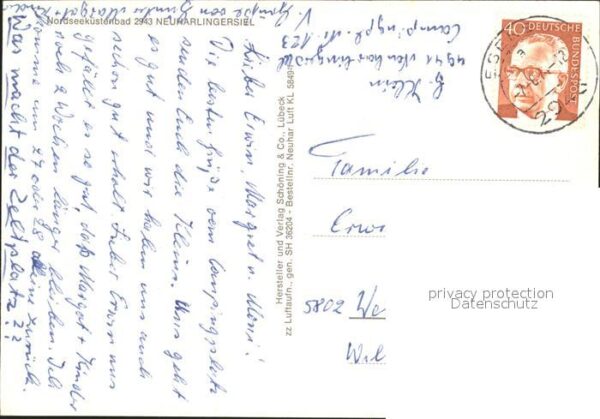 Nordseeküstenbad 2943 NEUHARLINGERSIEL
Liebe Erwin, Margret u. Moni!
Die besten Grüße vom Campingplatz
senden Euch die Kleins. Uns geht
es gut und wir haben uns auch
schon gut erholt. Lieber Erwin uns
gefällt es so gut, daß Margot + Kinder
noch 2 Wochen länger bleiben. Ich
komme am 27 oder 28 alleine zurück.
Was macht der Zeltplatz ??
V. Grüße von
Margot
Hersteller und Verlag Schöning & Co., Lübeck
zz Luftaufn., gen. SH 36204 - Bestellnr. Neuhar Luft KL 5849
Klein
2941 Neuharlingersiel
Campingpl. Nr. 123
40
DEUTSCHE BUNDESPOST
ESENS
2943
Familie
Erwi
5802 We
Wil
privacy protection
Datenschutz